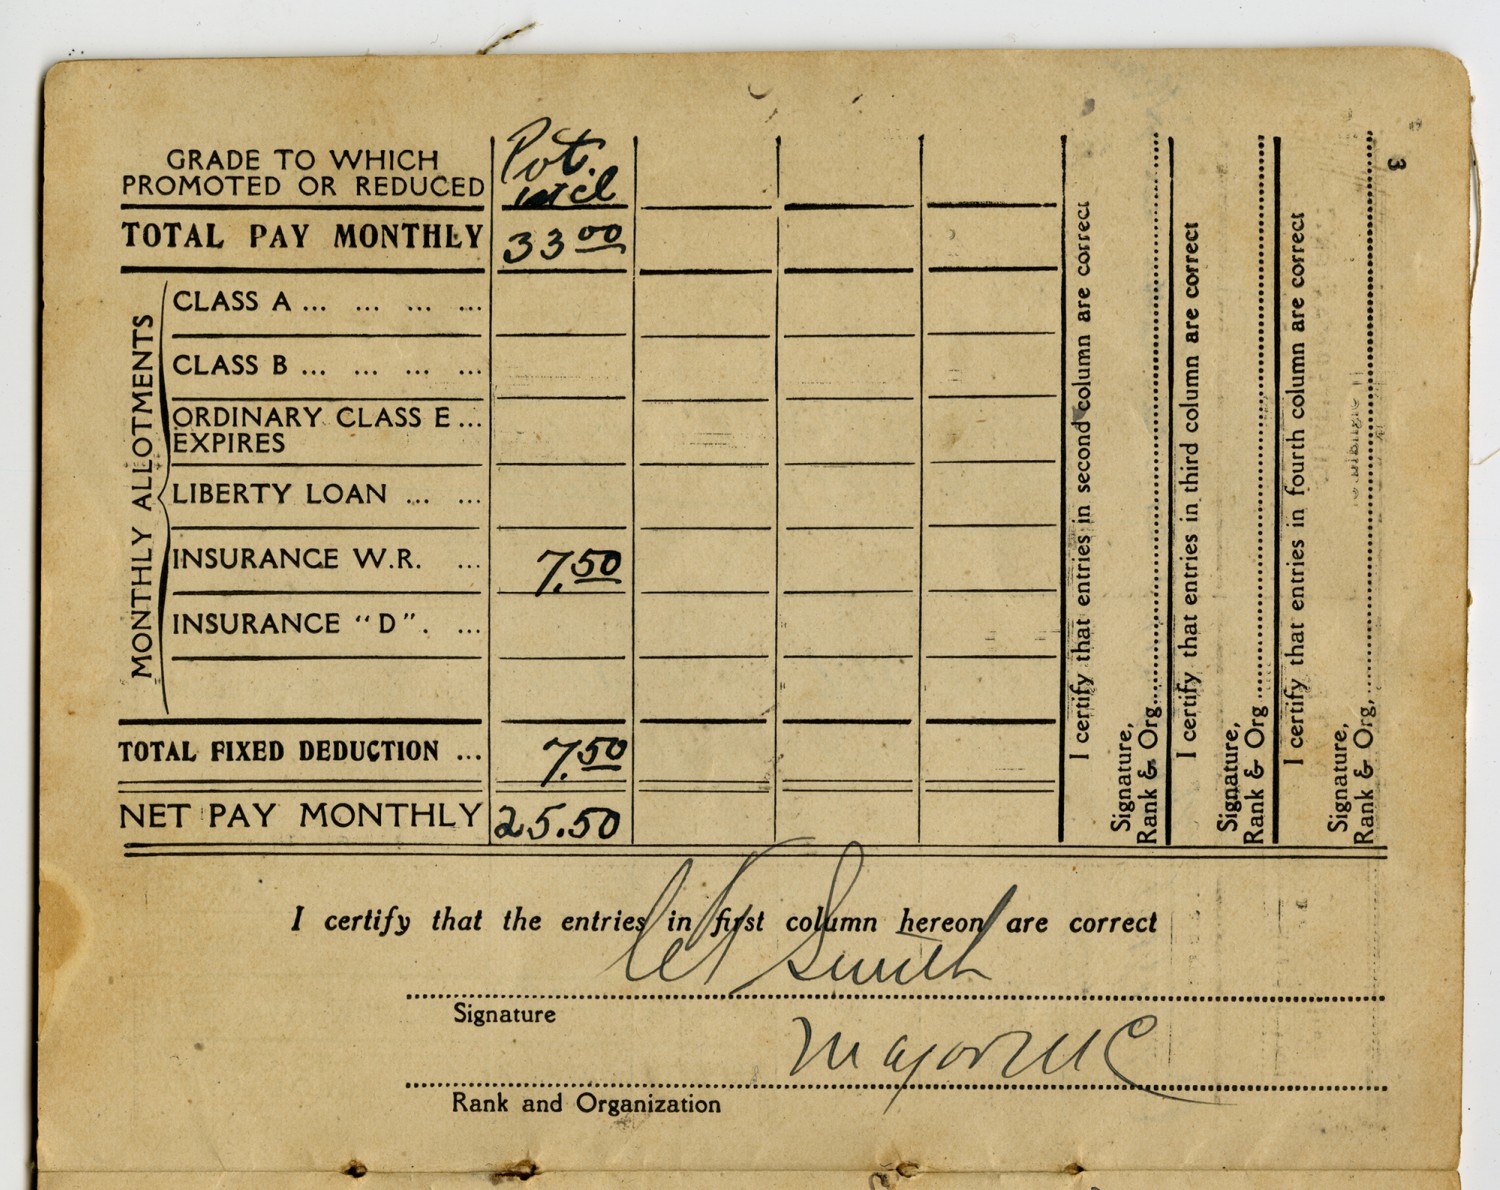 3
GRADE TO WHICH
PROMOTED OR REDUCED Pvt.
1st cl
TOTAL PAY MONTHLY 33 00
MONTHLY ALLOTMENTS
CLASS A ... ... ... ...
CLASS B ... ... ... ...
ORDINARY CLASS E ...
EXPIRES
LIBERTY LOAN ... ...
INSURANCE W.R. ... 7.50
INSURANCE "D". ...
TOTAL FIXED DEDUCTION ... 7.50
NET PAY MONTHLY 25.50
I certify that entries in second column are correct
Signature,
Rank & Org.
I certify that entries in third column are correct
Signature,
Rank & Org
I certify that entries in fourth column are correct
Signature,
Rank & Org,
I certify that the entries in first column hereon are correct
Smith
Signature
Major MC
Rank and Organization